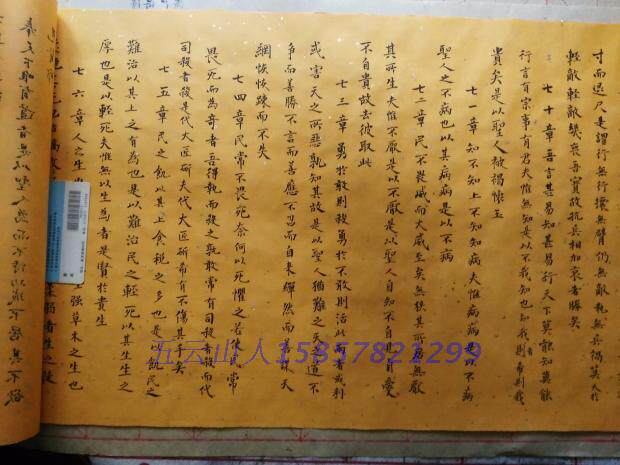 寸而退尺是謂行無行攘無臂仍無敵執無兵禍莫大於
輕敵輕敵幾喪吾寶故抗兵相加哀者勝矣
七十章吾言甚易知甚易行天下莫能知莫能
行言有宗事有君夫惟無知是以不我知也知我者希則我
貴矣是以聖人被褐懷玉
七十一章知不知上不知知病夫惟病病是以不病
聖人之不病也以其病病是以不病
七十二章民不畏威而大威至矣無狹其所居無厭
其所生夫惟不厭是以不厭是以聖人自知不自見自愛
不自貴故去彼取此
七十三章勇於敢則殺勇於不敢則活此兩者或利
或害天之所惡孰知其故是以聖人猶難之天之道不
争而善勝不言而善應不召而自来繟然而善謀天
網恢恢踈而不失
七十四章民常不畏死奈何以死懼之若使民常
畏死而為奇者吾得執而殺之孰敢常有司殺者殺而代
司殺者殺是代大匠斲夫代大匠斲希有不傷其手矣
七十五章民之飢以其上食稅之多也是以飢民之
難治以其上之有為也是以難治民之輕死以其生生之
厚也是以輕死夫惟無以生為者是賢於貴生
七十六章人之生也
强草木之生也
柔弱者生之徒
五云山人15857821299